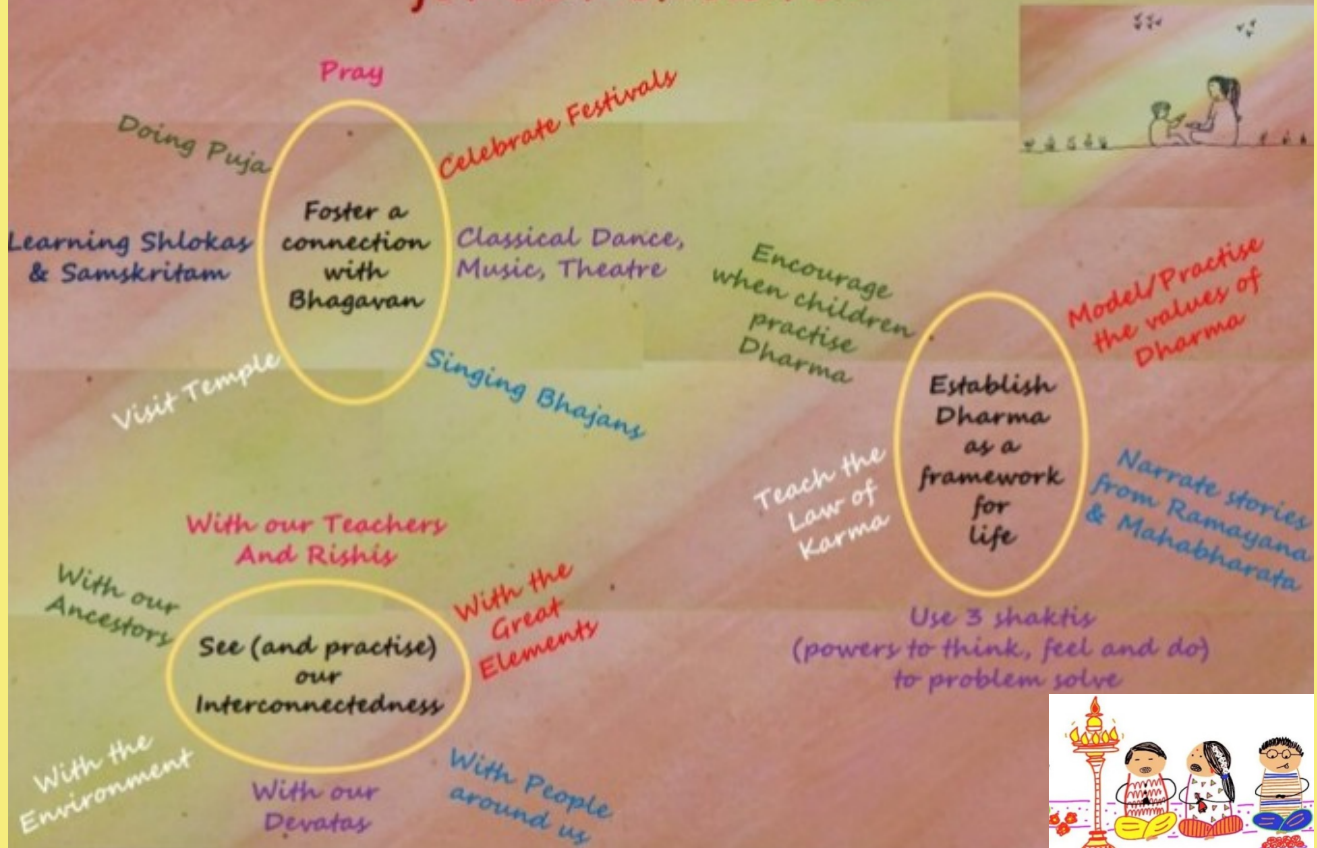 Pray
Doing Puja
Celebrate Festivals
Foster a
connection
with
Bhagavan
Learning Shlokas
& Samskritam
Classical Dance,
Music, Theatre
Visit Temple
Singing Bhajans
Encourage
when children
practise
Dharma
Model/Practise
the values of
Dharma
Establish
Dharma
as a
framework
for
life
Teach the
Law of
Karma
Narrate stories
from Ramayana
& Mahabharata
Use 3 shaktis
(powers to think, feel and do)
to problem solve
With our Teachers
And Rishis
With our
Ancestors
With the
Great
Elements
See (and practise)
our
Interconnectedness
With the
Environment
With our
Devatas
With People
around us